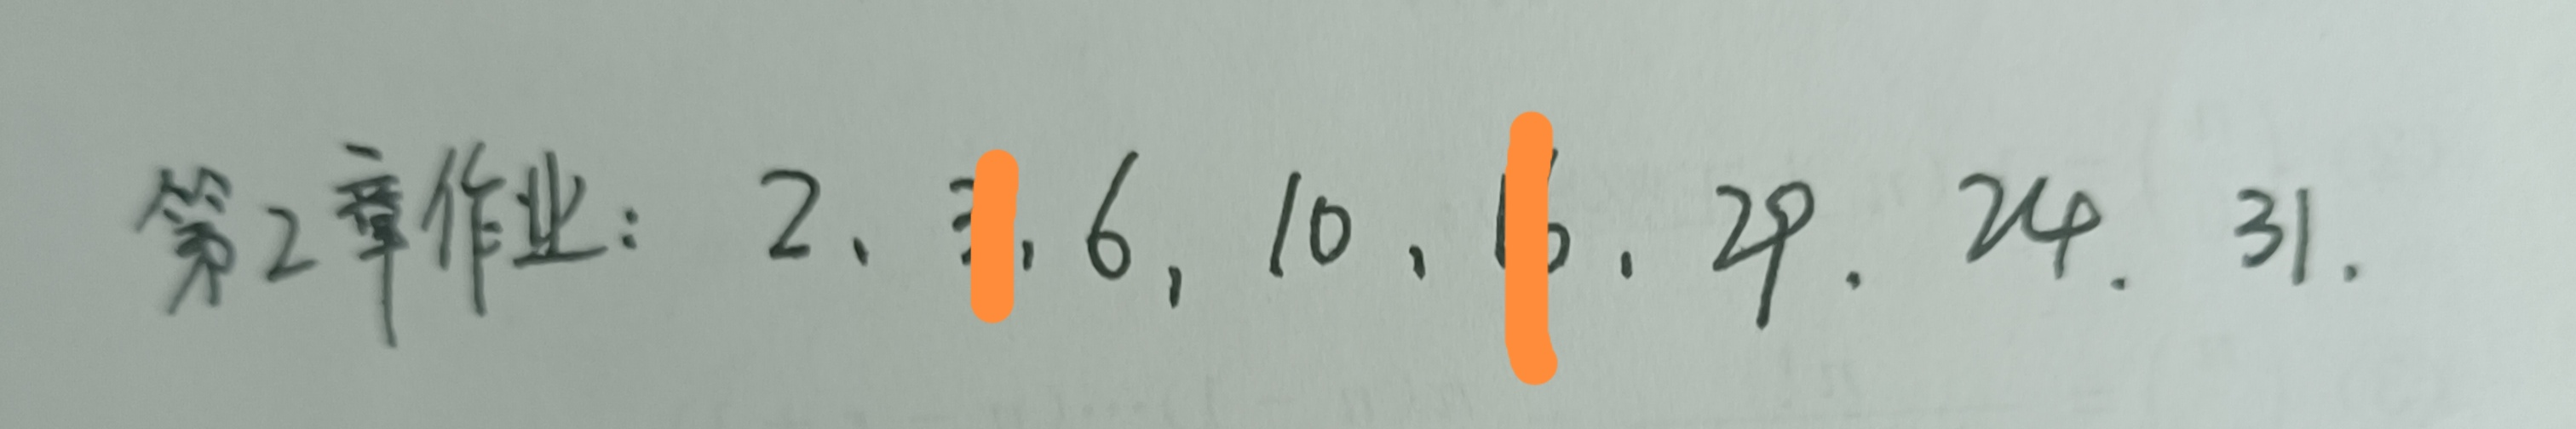 第2章作业: 2、 , 6, 10、 、 29. 24. 31.